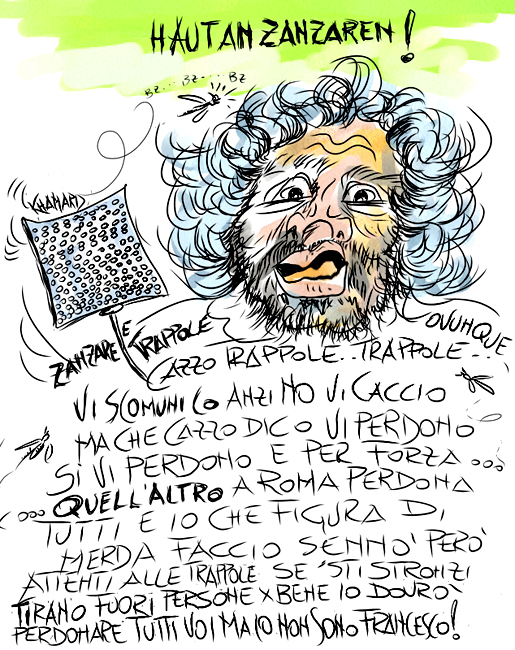 HAUTAN ZANZAREN!
BZ... BZ.... BZ
ZANZARE E TRAPPOLE OVUNQUE
CAZZO TRAPPOLE... TRAPPOLE...
VI SCOMUNICO ANZI NO VI CACCIO
MA CHE CAZZO DICO VI PERDONO
SI VI PERDONO E PER FORZA ...
... QUELL'ALTRO A ROMA PERDONA
TUTTI E IO CHE FIGURA DI
MERDA FACCIO SENNO' PERO'
ATTENTI ALLE TRAPPOLE SE 'STI STRONZI
TIRANO FUORI PERSONE X BENE IO DOVRO'
PERDONARE TUTTI VOI MA IO NON SONO FRANCESCO!